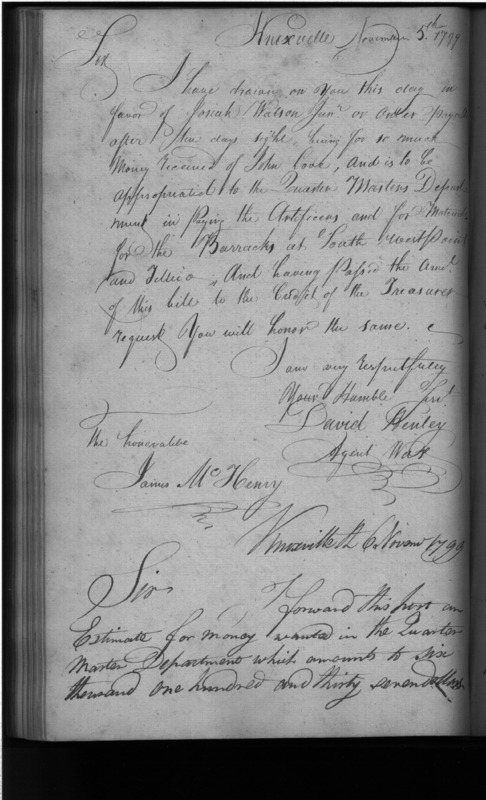 Knoxville November 5.th 1799
Sir
I have drawn on You this day in
favor of Josiah Watson Junr. or order payable
after ten days sight, being for so much
Money received of John Cook, and is to be
appropriated to the Quarter Masters Depart
ment in paying the Artificers and for Materials
for the Barracks at South West Point
and Tellico, And having passed the Amt.
of this bill to the Credit of the Treasurer
request You will honor the same.
I am very respectfully
Your Humble Srt.
David Henley
Agent War
The honorable
James McHenry
Knoxville 6 Novemr 1799
Sir
I forward this post an
Estimate for money wanted in the Quarter
Master Department which amounts to six
thousand one hundred and thirty seven dollars